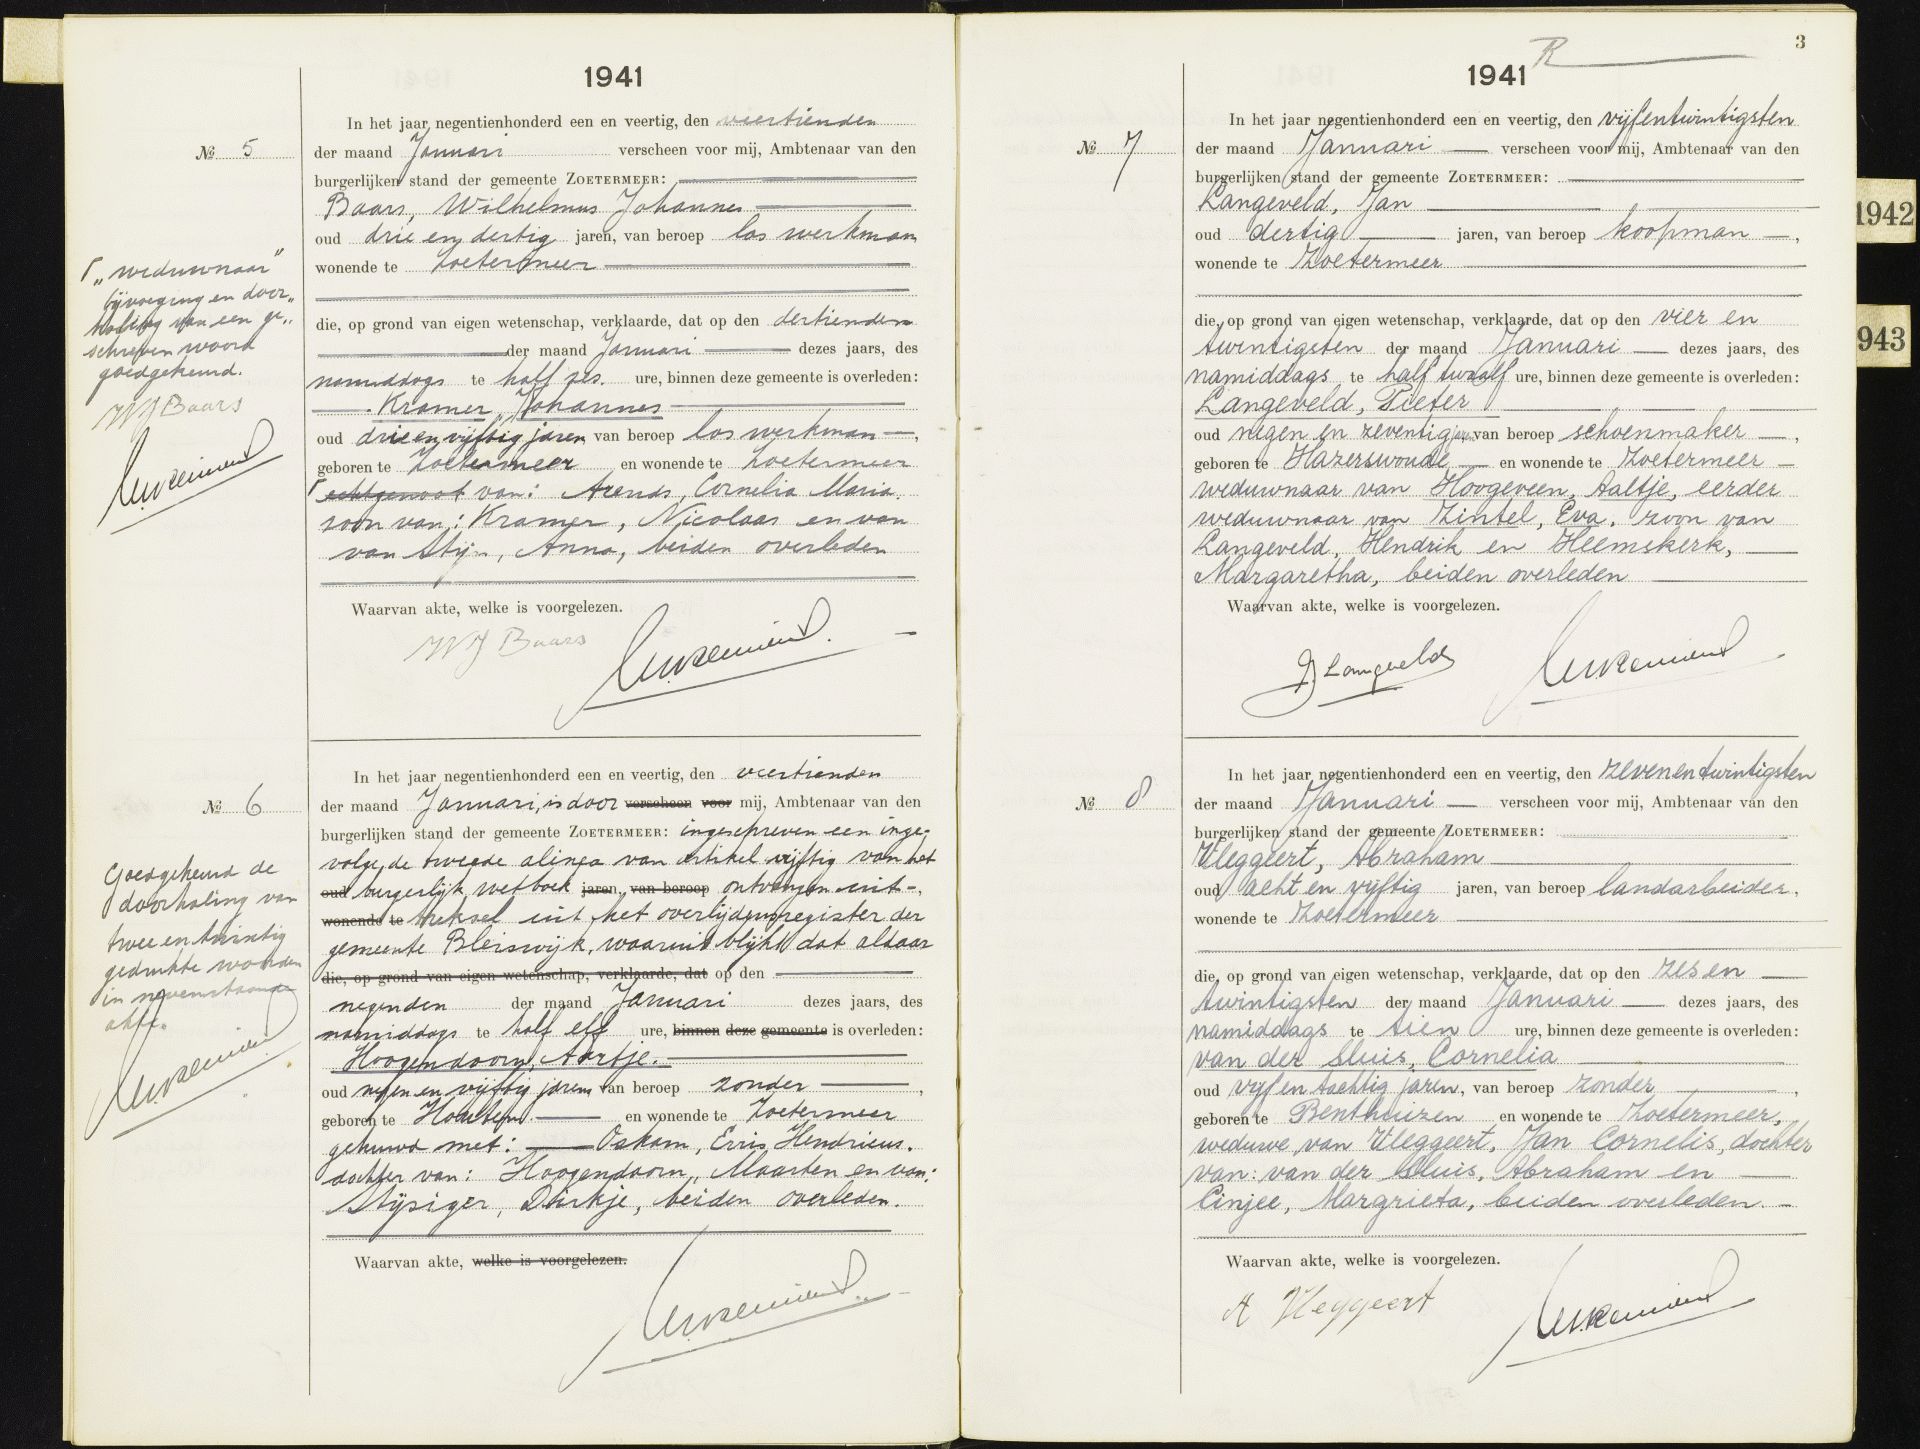 1941
In het jaar negentienhonderd een en veertig, den veertienden
№ 5
der maand Januari verscheen voor mij, Ambtenaar van den
burgerlijken stand der gemeente ZOETERMEER:
Baars, Wilhelmus Johannes
oud drie en dertig jaren, van beroep los werkman
wonende te Zoetermeer
die, op grond van eigen wetenschap, verklaarde, dat op den dertienden
der maand Januari dezes jaars, des
namiddags te half zes ure, binnen deze gemeente is overleden:
Kramer, Johannes
oud drie en vijftig jaren van beroep los werkman,
geboren te Zoetermeer en wonende te Zoetermeer
echtgenoot van: Arends, Cornelia Maria.
zoon van: Kramer, Nicolaas en van
van Stijn, Anna, beiden overleden
Waarvan akte, welke is voorgelezen.
WJ Baars
„weduwnaar"
bijvoeging en door„
haling van een ge„
schreven woord
goedgekeurd.
WJ Baars
In het jaar negentienhonderd een en veertig, den veertienden
№ 6
der maand Januari, is door verscheen voor mij, Ambtenaar van den
burgerlijken stand der gemeente ZOETERMEER: ingeschreven een inge-
volge de tweede alinea van artikel vijftig van het
oud burgerlijk wetboek jaren, van beroep ontvangen uit-,
wonende te treksel uit het overlijdensregister der
gemeente Bleiswijk, waaruit blijkt dat aldaar
die, op grond van eigen wetenschap, verklaarde, dat op den
negenden der maand Januari dezes jaars, des
namiddags te half elf ure, binnen deze gemeente is overleden:
Hoogendoorn, Aartje.
oud negen en vijftig jaren van beroep zonder,
geboren te Houten en wonende te Zoetermeer
gehuwd met: Oskam, Erris Hendricus.
dochter van: Hoogendoorn, Maarten en van:
Stijsiger, Dirkje, beiden overleden.
Waarvan akte, welke is voorgelezen.
Goedgekeurd de
doorhaling van
twee en twintig
gedrukte woorden
in nevenstaande
akte.
3
R
1941
In het jaar negentienhonderd een en veertig, den vijfentwintigsten
№ 7
der maand Januari verscheen voor mij, Ambtenaar van den
burgerlijken stand der gemeente ZOETERMEER:
Langeveld, Jan
oud dertig jaren, van beroep koopman,
wonende te Zoetermeer
die, op grond van eigen wetenschap, verklaarde, dat op den vier en
twintigsten der maand Januari dezes jaars, des
namiddags te half twaalf ure, binnen deze gemeente is overleden:
Langeveld, Pieter
oud negen en zeventig jaren van beroep schoenmaker,
geboren te Hazerswoude en wonende te Zoetermeer
weduwnaar van Hoogeveen, Aaltje, eerder
weduwnaar van Zintel, Eva, zoon van
Langeveld, Hendrik en Heemskerk,
Margaretha, beiden overleden
Waarvan akte, welke is voorgelezen.
J Langeveld
In het jaar negentienhonderd een en veertig, den zevenentwintigsten
№ 8
der maand Januari verscheen voor mij, Ambtenaar van den
burgerlijken stand der gemeente ZOETERMEER:
Vleggeert, Abraham
oud acht en vijftig jaren, van beroep landarbeider,
wonende te Zoetermeer
die, op grond van eigen wetenschap, verklaarde, dat op den zes en
twintigsten der maand Januari dezes jaars, des
namiddags te tien ure, binnen deze gemeente is overleden:
van der Sluis, Cornelia
oud vijf en tachtig jaren, van beroep zonder,
geboren te Benthuizen en wonende te Zoetermeer,
weduwe van Vleggeert, Jan Cornelis, dochter
van: van der Sluis, Abraham en
Cinjee, Margrieta, beiden overleden.
Waarvan akte, welke is voorgelezen.
A Vleggeert
1942
943